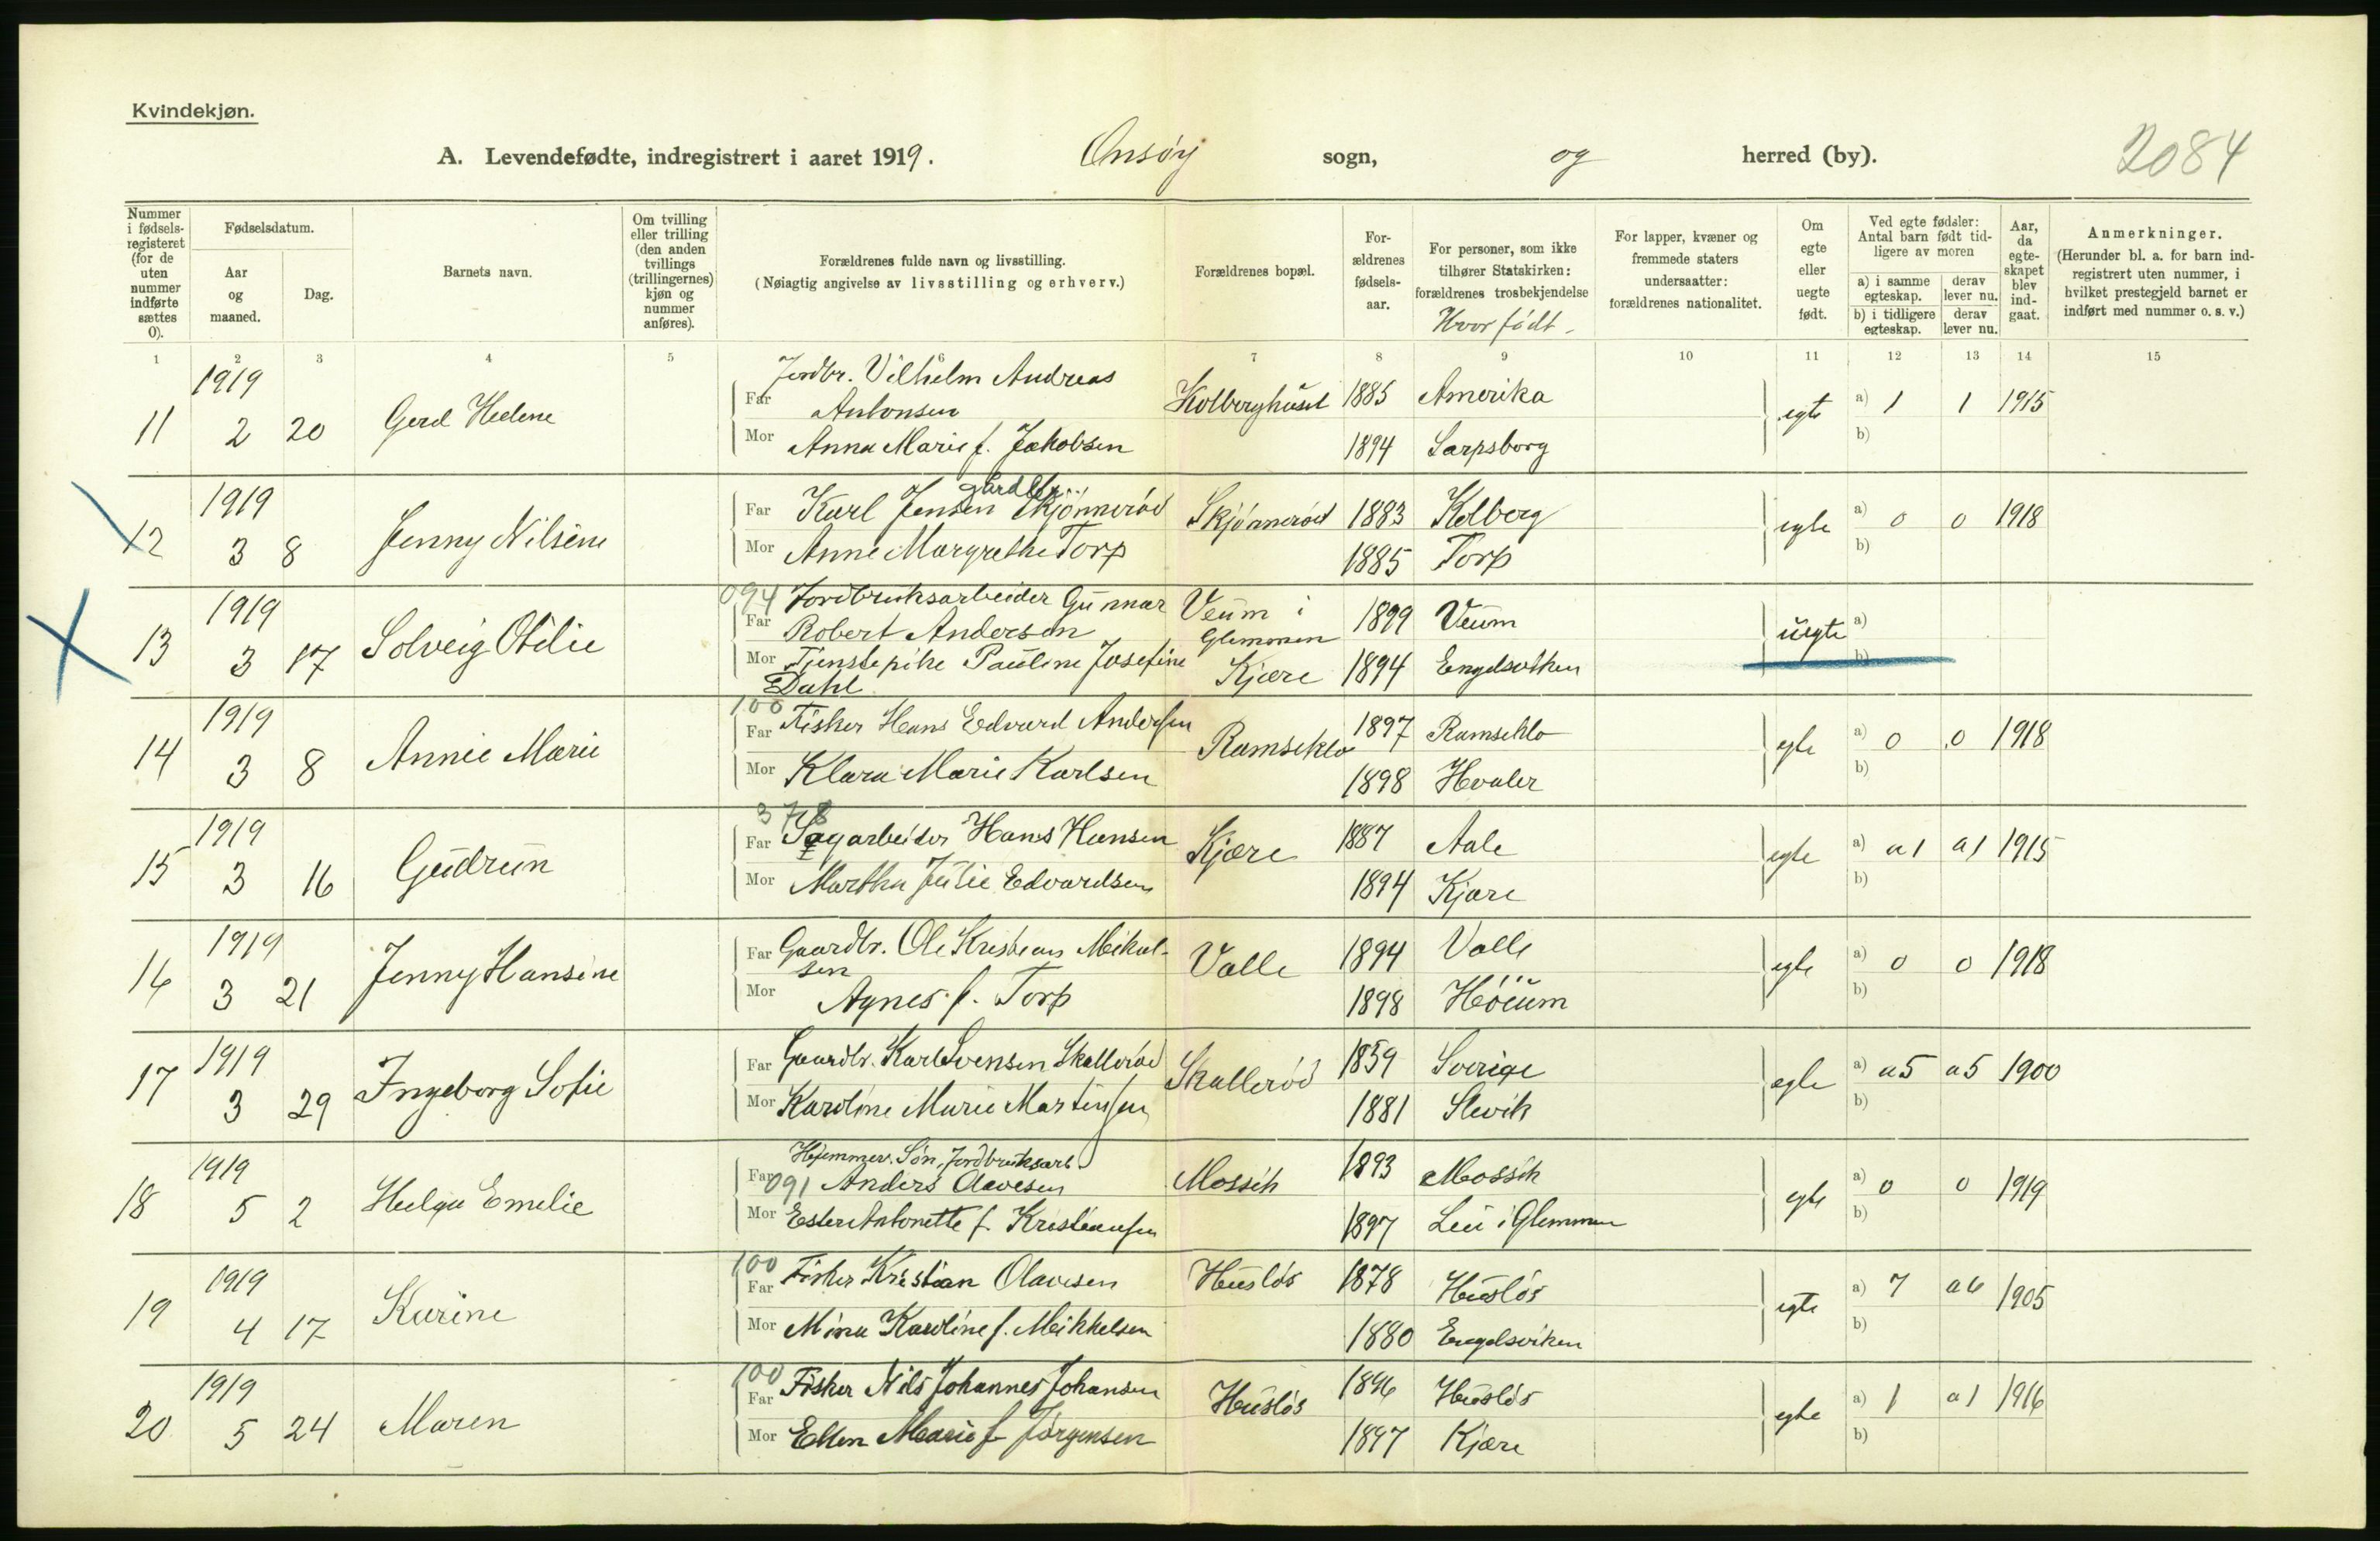 Kvindekjøn.
A. Levendefødte, indregistrert i aaret 1919. Onsøy sogn, og herred (by). 2084
Nummer i fødselsregisteret (for de uten nummer indførte sættes 0).
Fødselsdatum.
Aar og maaned.
Dag.
Barnets navn.
Om tvilling eller trilling (den anden tvillings (trillingernes) kjøn og nummer anføres).
Forældrenes fulde navn og livsstilling.
(Nøiagtig angivelse av livsstilling og erhverv.)
Forældrenes bopæl.
Forældrenes fødselsaar.
For personer, som ikke tilhører Statskirken: forældrenes trosbekjendelse
Hvor født.
For lapper, kvæner og fremmede staters undersaatter: forældrenes nationalitet.
Om egte eller uegte født.
Ved egte fødsler: Antal barn født tidligere av moren
a) i samme egteskap.
derav lever nu.
b) i tidligere egteskap.
derav lever nu.
Aar, da egteskapet blev indgaat.
Anmerkninger.
(Herunder bl. a. for barn indregistrert uten nummer, i hvilket prestegjeld barnet er indført med nummer o. s. v.)
1 2 3 4 5 6 7 8 9 10 11 12 13 14 15
11 1919 2 20 Gerd Helene
Far Jordbr. Vilhelm Andreas Antonsen Kolberghuset 1885 Amerika egte a) 1 1 1915
Mor Anna Marie f. Jakobsen 1894 Sarpsborg b)
12 1919 3 8 Jenny Nilsine
Far Karl Jensen Skjønnerød gårdbr. Skjønnerød 1883 Kolberg egte a) 0 0 1918
Mor Anne Margrethe Torp 1885 Torp b)
13 1919 3 17 Solveig Otilie
094 Far Jordbruksarbeider Gunnar Robert Anderson Veum i Glemmen 1899 Veum uegte a)
Mor Tjenstepike Pauline Josefine Dahl Kjære 1894 Engelsviken b)
14 1919 3 8 Annie Marie
100 Far Fisker Hans Edvard Andersen Ramseklo 1897 Ramseklo egte a) 0 0 1918
Mor Klara Marie Karlsen 1898 Hvaler b)
15 1919 3 16 Gudrun
378 Far Sagarbeider Hans Hansen Kjære 1887 Aale egte a) a1 a1 1915
Mor Martha Julie Edvardsen 1894 Kjære b)
16 1919 3 21 Jenny Hansine
Far Gaardbr. Ole Kristian Mikalsen Valle 1894 Valle egte a) 0 0 1918
Mor Agnes f. Torp 1898 Høium b)
17 1919 3 29 Ingeborg Sofie
Far Gaardbr. Karl Svensen Skallerød Skallerød 1859 Sverige egte a) a5 a5 1900
Mor Karoline Marie Martinsen 1881 Slevik b)
18 1919 5 2 Helga Emelie
Far 091 Hjemmev. Søn, Jordbruksarb. Anders Olavesen Mossik 1893 Mossik egte a) 0 0 1919
Mor Ester Antonette f. Kristiansen 1897 Lei i Glemmen b)
19 1919 4 17 Karine
100 Far Fisker Kristian Olavesen Husløs 1878 Husløs egte a) 7 a6 1905
Mor Mina Karoline f. Mikkelsen 1880 Engelsviken b)
20 1919 5 24 Maren
100 Far Fisker Nils Johannes Johansen Husløs 1896 Husløs egte a) 1 a1 1916
Mor Ellen Marie f. Jørgensen 1897 Kjære b)